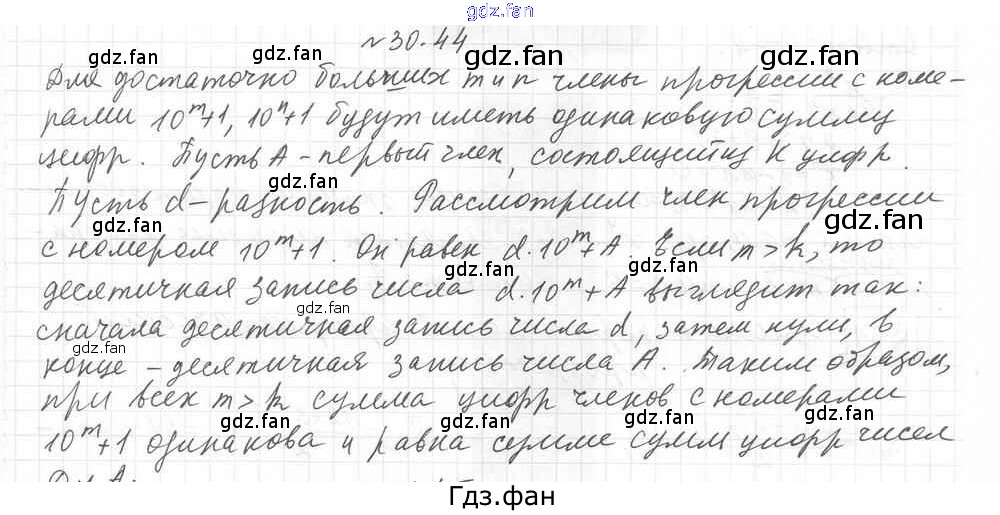 gdz.fan
№30.44
gdz.fan gdz.fan
Для достаточно больших m и n члены прогрессии с номе-
рами 10^m+1, 10^n+1 будут иметь одинаковую сумму
gdz.fan gdz.fan
цифр. Пусть A - первый член, состоящий из K цифр.
gdz.fan
Пусть d - разность. Рассмотрим член прогрессии
gdz.fan gdz.fan
с номером 10^m+1. Он равен d·10^m+A. Если m>k, то
gdz.fan
десятичная запись числа d·10^m+A выглядит так:
gdz.fan
сначала десятичная запись числа d, затем нули, в
gdz.fan
конце - десятичная запись числа A. Таким образом,
gdz.fan
при всех m>k сумма цифр членов с номерами
gdz.fan gdz.fan gdz.fan
10^m+1 одинакова и равна сумме сумм цифр чисел
gdz.fan
Гдз.фан